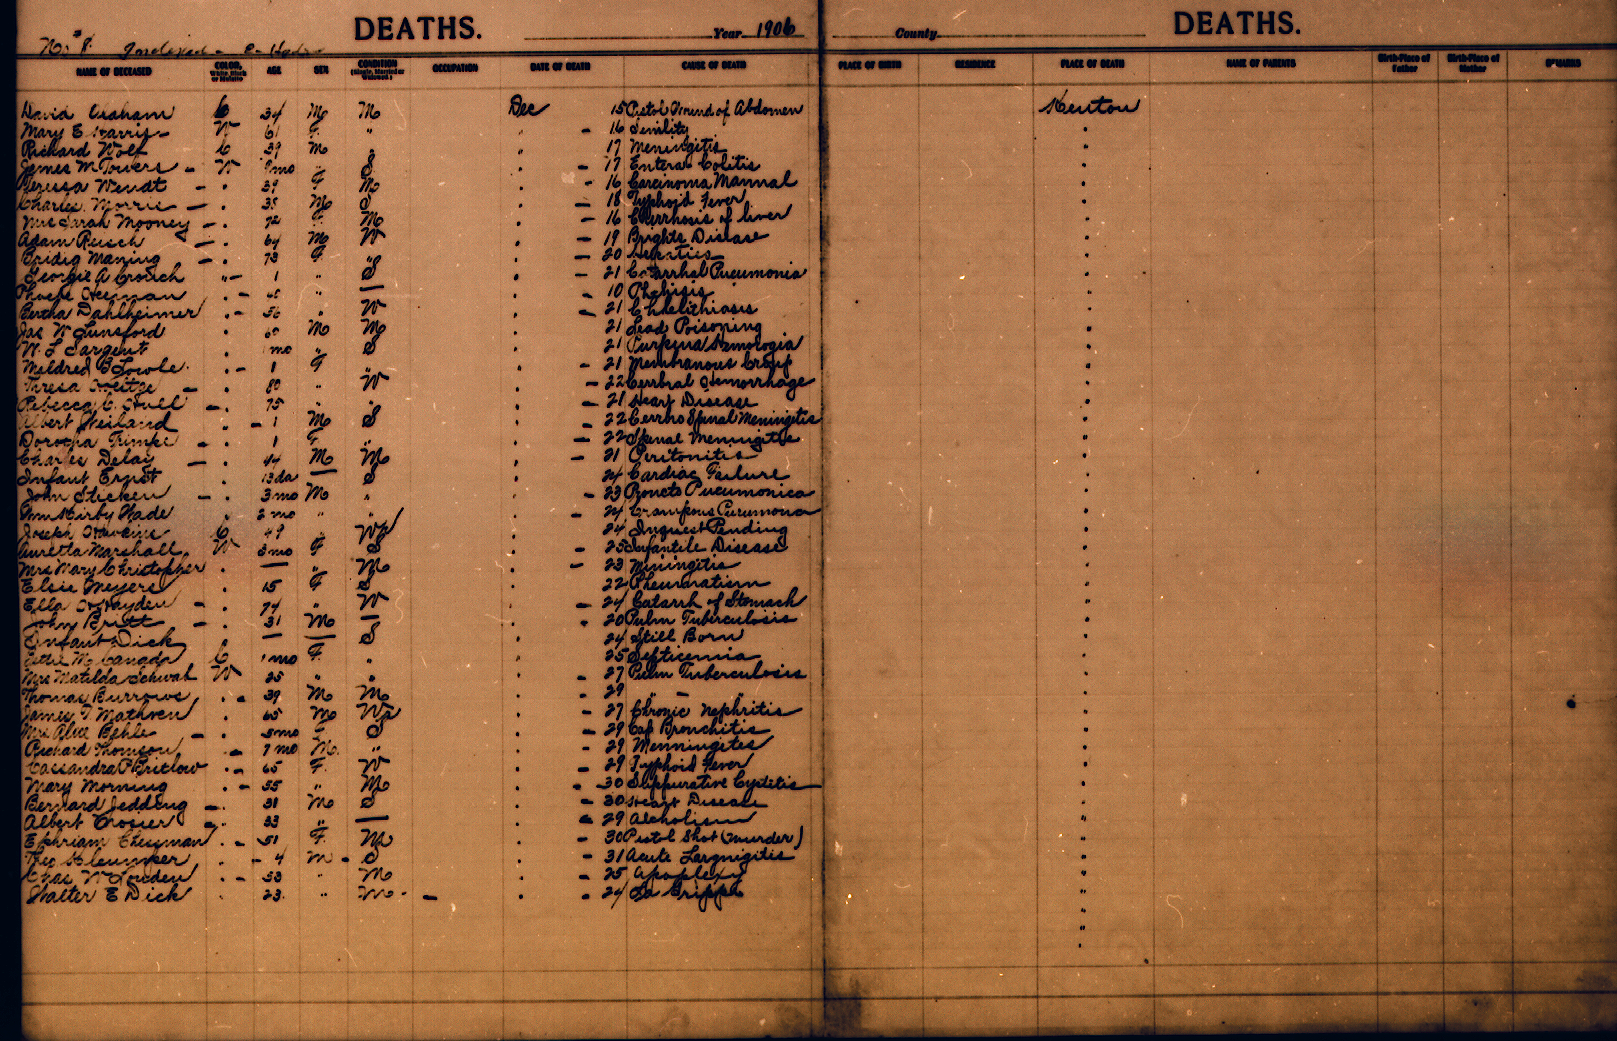 DEATHS. Year 1906 County DEATHS.
No. 8.
NAME OF DECEASED COLOR, White, Black or Mulatto AGE SEX CONDITION (Single, Married or Widowed) OCCUPATION DATE OF DEATH CAUSE OF DEATH PLACE OF BIRTH RESIDENCE PLACE OF DEATH NAME OF PARENTS Birth-Place of Father Birth-Place of Mother REMARKS
David Graham C 34 M M Dec 15 Pistol Wound of Abdomen Kenton
Mary E Harris W 61 F. " " - 16 Senility "
Richard Wolf C 39 M " " 17 Meningitis "
James M Towers - W mo " S " - 17 Entero Colitis "
Teressa Wendt - " 39 F M " - 16 Carcinoma Mammal "
Charles Morris - " 35 M S " - 18 Typhoid Fever "
Mrs Sarah Mooney - " 72 F. M " - 16 Cherrhosis of liver "
Adam Reisch - " 64 M W " - 19 Brights Disease "
Bridig Maning - " 73 F. " " - 20 "
Georgie A Crouch " - 1 " S " - 21 Catarrhal Pneumonia "
Phoebe Heeman " - " — " 10 Phthisis "
Bertha Dahlheimer " - 56 " W " - 21 "
Jas W Lunsford " 60 M M " 21 Lead Poisoning "
W. L Sargent " mo " S " 21 Purpura "
Mildred B Lowle " - 1 F " " - 21 Membranous Croup "
Teresa - " 80 " W " - 22 Cerebral Hemorrhage "
Rebecca C. Hull - " 75 " " " - 21 Heart Disease "
Albert Weiland " - 1 M S " - 22 Cerebro Spinal Meningitis "
Dorotha Trimke - " 1 F " " - 22 Spinal Meningitis "
Charles Delay - " 44 M M " - 21 Peritonitis "
Infant Ernst " 13 da — S " 24 Cardiac Failure "
John Sticken - " 3 mo M " " - 23 Broncto Pneumonica "
Wm Kirby Wade " 2 mo " " " - 24 Croupous Pneumona "
Joseph C 49 " " 24 Inquest Pending "
Auretta Marshall W 3 mo F S " - 25 Infantile Disease "
Mrs Mary Christopher " — " M " - 23 Miningitis "
Elsie Meyers " 15 F S " 22 Rheumatism "
Ella Hayden - " 74 " W " - 24 Catarrh of Stomach "
John Britt - " 31 M — " - 20 Pulm Tuberculosis "
Infant Dick " — — S " 24 Still Born "
M. Canada C mo F. " " 25 Septicemia "
Mrs Matilda Schwab W 25 " " " - 27 Pulm Tuberculosis "
Thomas Burrows " - 39 M M " - 29 " - " "
James T Mathven " 65 M " - 27 Chronic Nephritis "
Mrs Alice Behle - " 3 mo F S " - 29 Cap Bronchitis "
Richard Thomson " - 7 mo M. " " - 29 Menningites "
Cassandra P Britlow " - 65 F. W " - 29 Typhoid Fever "
Mary Morning " - 55 " M " - 30 Suppurative Cystitis "
Bernard Jedding - " 31 M S " - 30 Heart Disease "
Albert Crosier - " 33 " — " - 29 Alcholism "
Ephriam Chessman " - 51 F. M " - 30 Pistol Shot (Murder) "
Theo Kleumper - 4 M - S " - 31 Acute Largnigitis "
Chas W Louden " - 53 " M " - 25 Apoplexy "
Walter E Dick " 23. " M - " - 24 La Grippe "
"
"
"